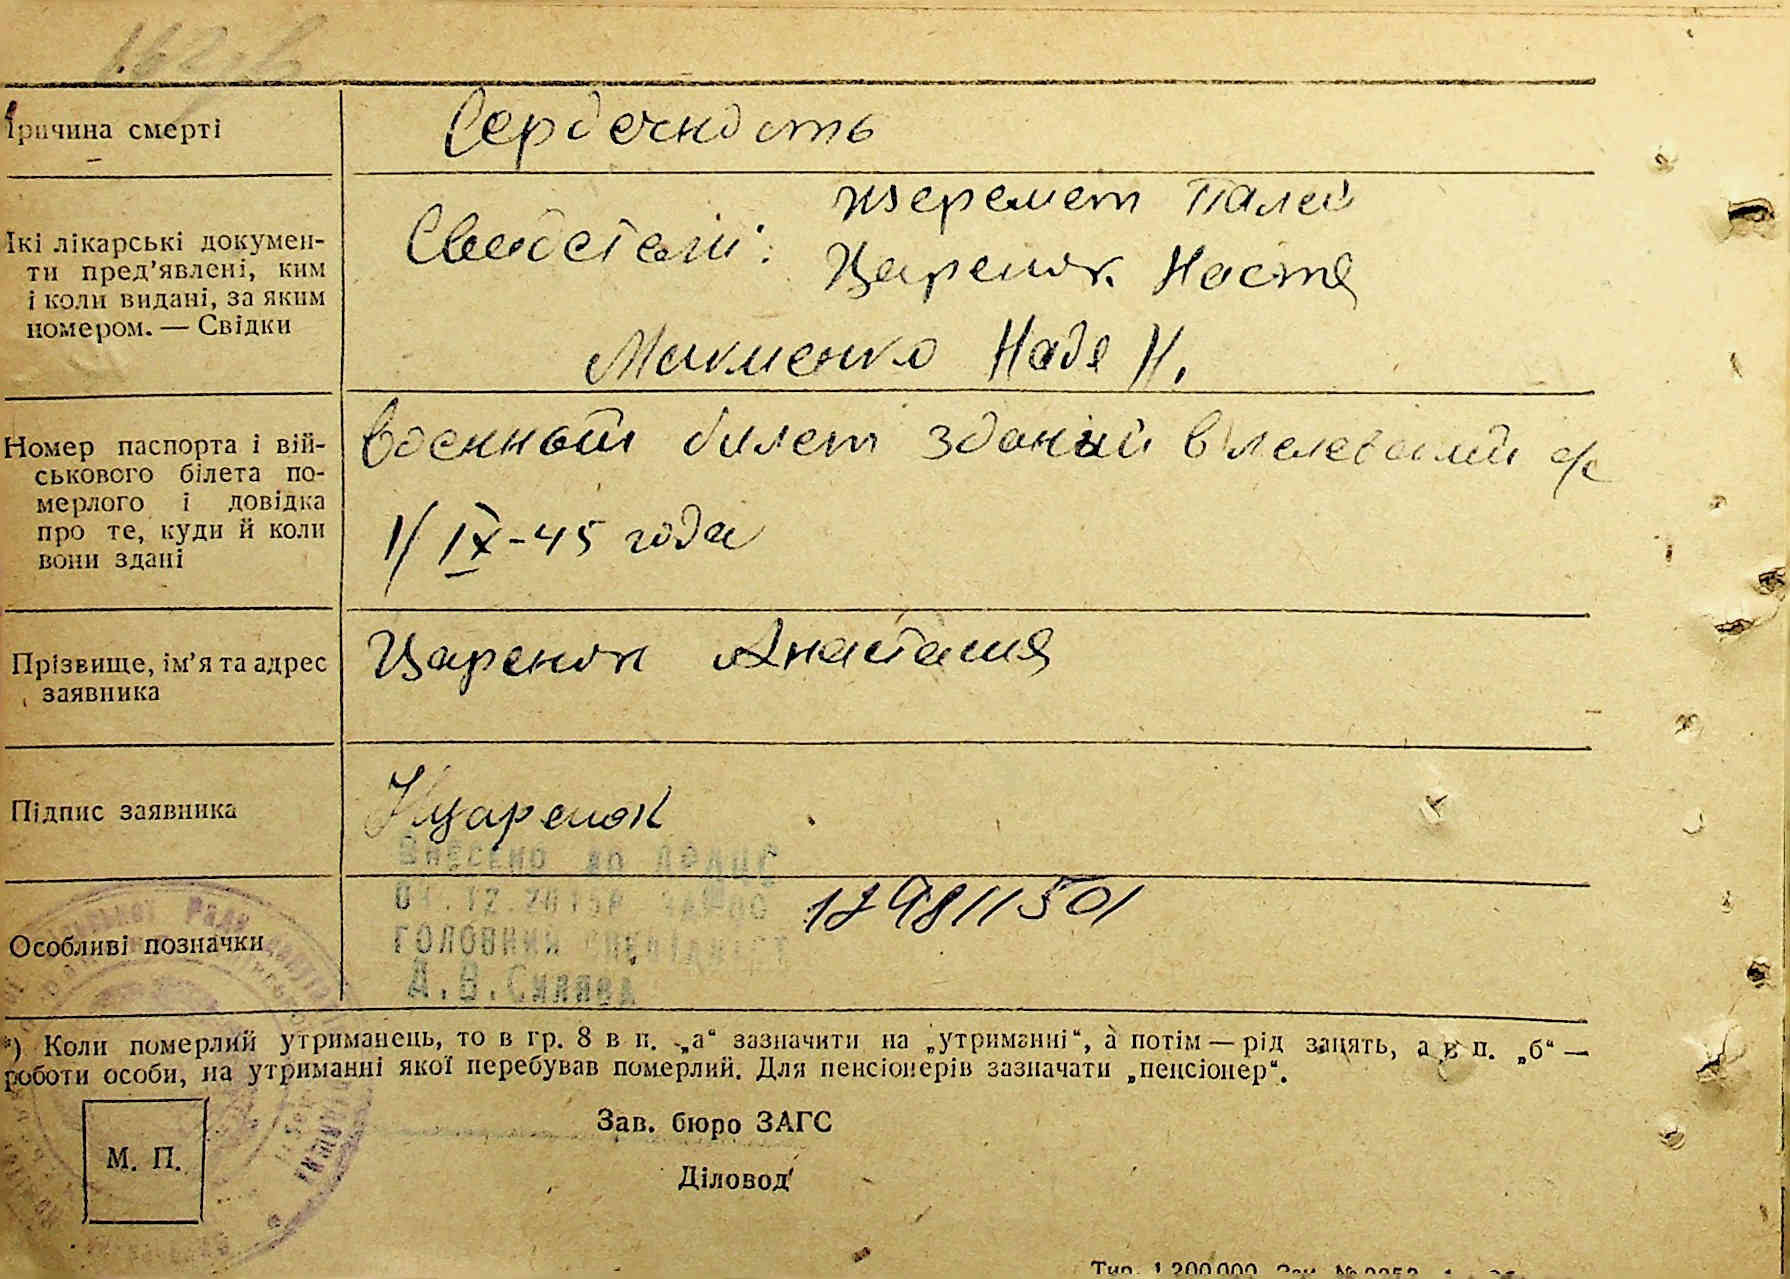 Причина смерті
Сердечность
Які лікарські докумен-
ти пред’явлені, ким
і коли видані, за яким
номером. — Свідки
Шеремет Палей
Свидетели:
Царенок Настя
Накменко Надя Н.
Номер паспорта і вій-
ськового білета по-
мерлого і довідка
про те, куди й коли
вони здані
Военный билет зданый в
1/IX-45 года
Прізвище, ім’я та адрес
заявника
Царенок Анастасия
Підпис заявника
Нцаренок
Внесено до ДРАЦС
Особливі позначки
ГОЛОВНИЙ СПЕЦІАЛІСТ
А.В.
*) Коли померлий утриманець, то в гр. 8 в п. „а“ зазначити на „утриманні“, а потім — рід занять, а в п. „б“ —
роботи особи, на утриманні якої перебував померлий. Для пенсіонерів зазначати „пенсіонер“.
Зав. бюро ЗАГС
М. П.
Діловод